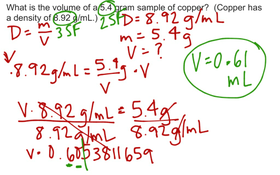 What is the volume of a 5.4 gram sample of copper? (Copper has
a density of 8.92 g/mL.)
2SF
D = 8.92 g/mL
D = m/V
3SF
m = 5.4g
V = ?
V · 8.92 g/mL = 5.4g/V · V
V = 0.61
mL
V · 8.92 g/mL / 8.92 g/mL = 5.4g / 8.92 g/mL
V · 0.6053811659